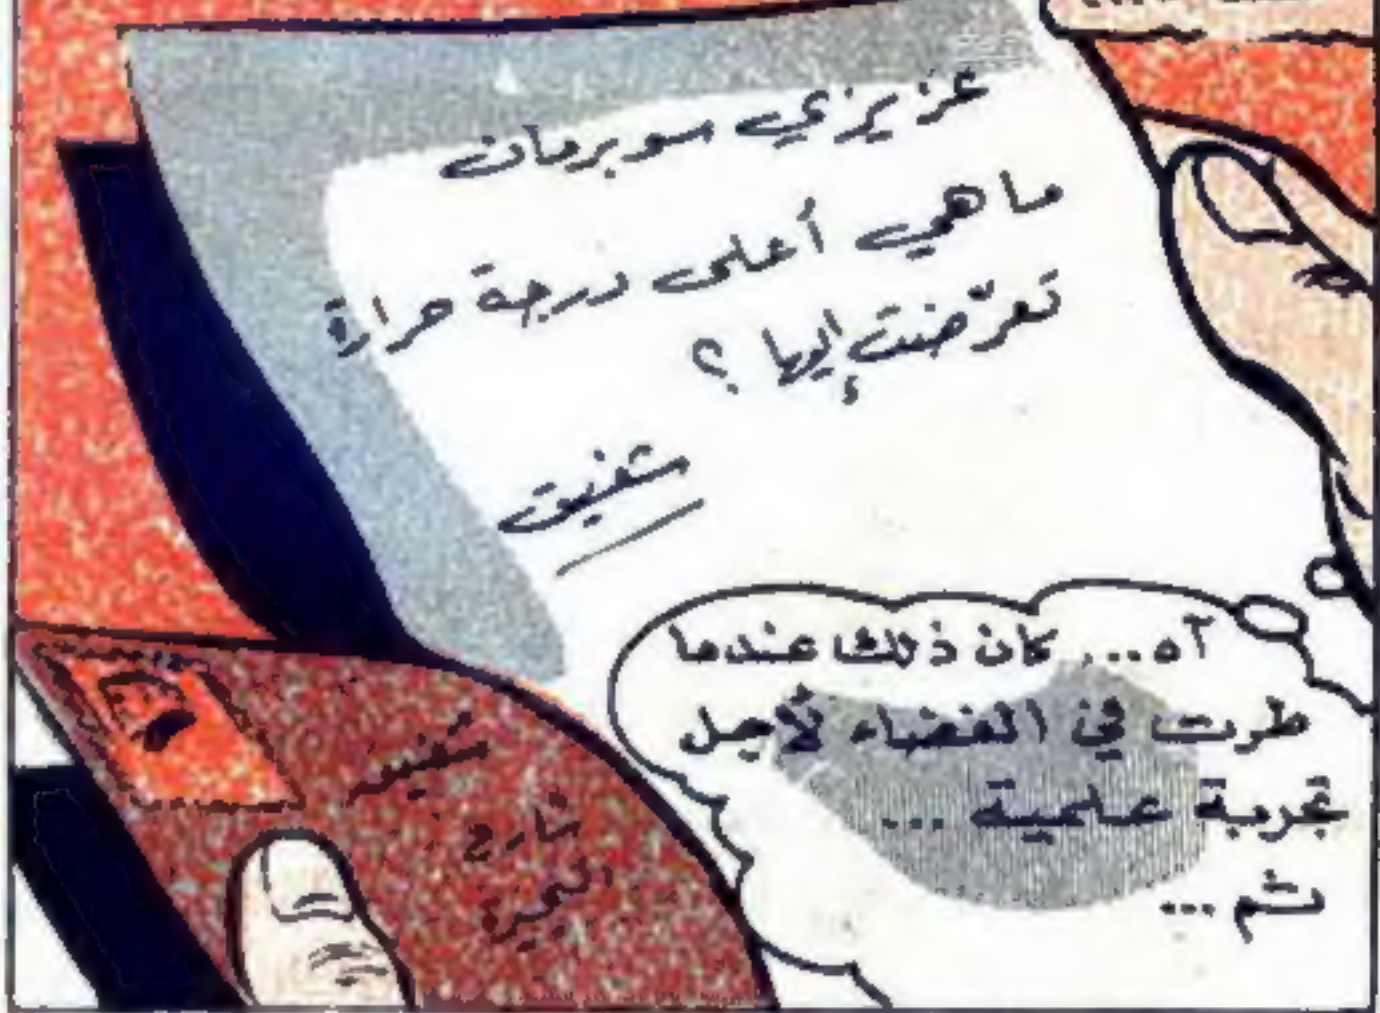 عزيزي سوبرمان
ما هي أعلى درجة حرارة
تعرّضت إليها ؟
شفيق
آه... كان ذلك عندما
طرت في الفضاء لأجل
تجربة علمية ...
ثم ...
شارع